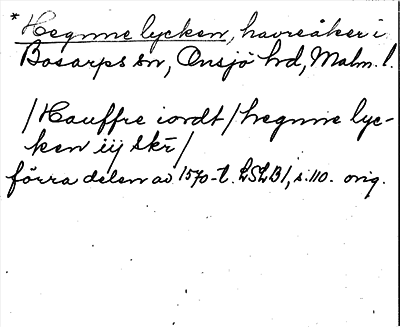 * Hegnne lycken, havreåker i
Bosarps sn, Onsjö hd, Malm. l.
/Hauffre iordt/hegnne lyc-
ken iij skr/
förra delen av 1570-t. LSLB1, s. 110. orig.